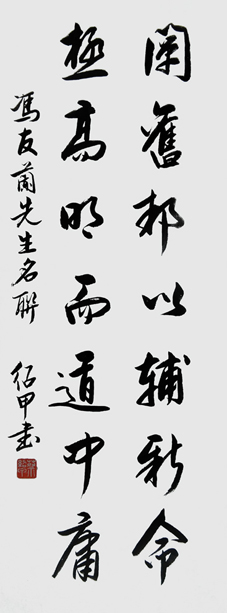 闡舊邦以輔新命
極高明而道中庸
馮友蘭先生名聯 紹甲書